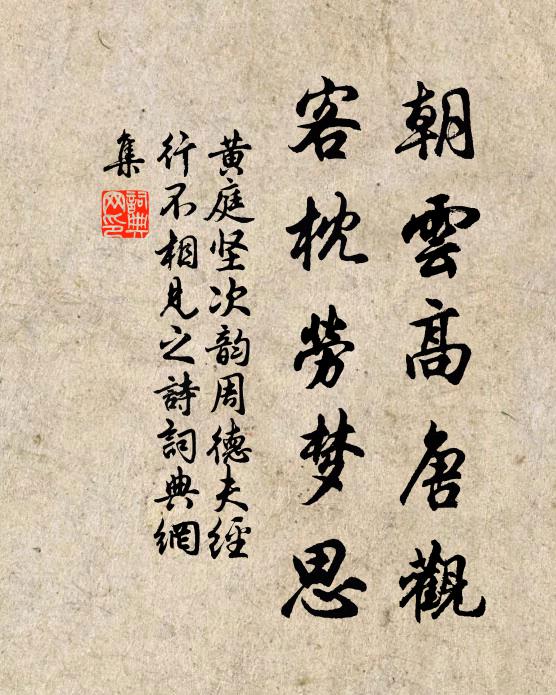 朝雲高唐觀
客枕勞梦思
黄庭坚次韵周德夫經
行不相見之詩詞典網
集
詞典
网印